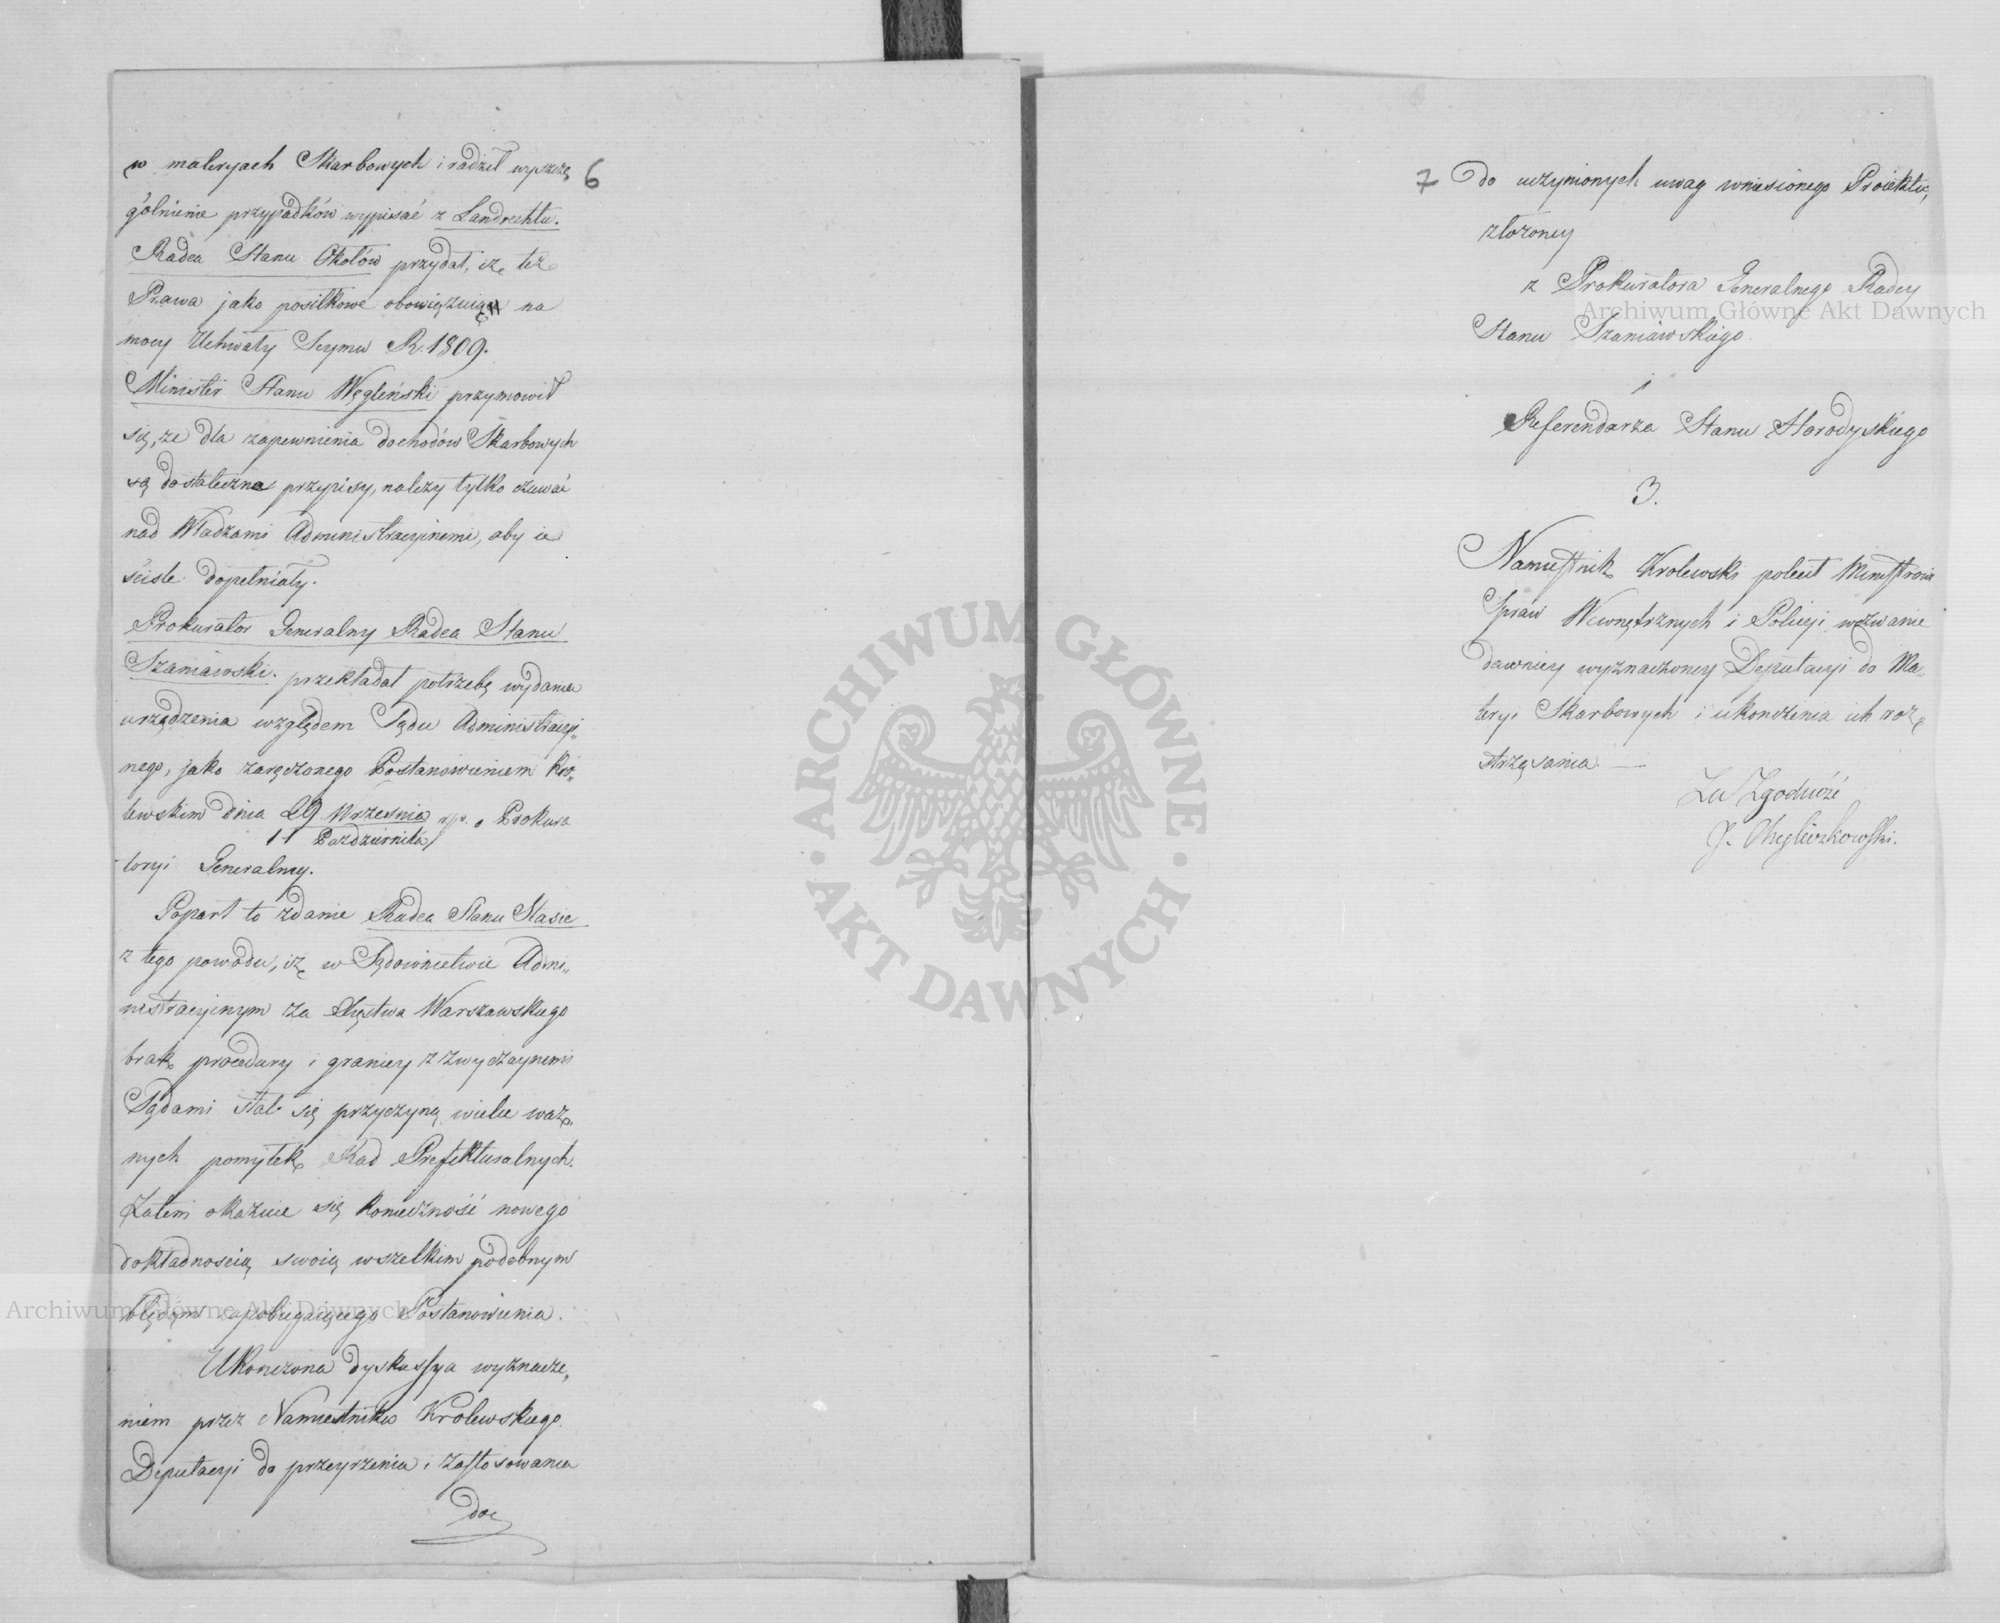 w materyach Skarbowych i radził wyszcze„
gólnienie przypadków wypisać z Landrechtu.
Radca Stanu Okołów przydał, iż te
Prawa jako posiłkowe obowięzuią na
mocy Uchwały Seymu R. 1809.
Minister Stanu Węgleński przymowił
się, że dla zapewnienia dochodów Skarbowych
są dostateczne przepisy, należy tylko czuwać
nad Władzami Administracyinemi, aby ie
ściśle dopełniały.
Prokurator Generalny Radca Stanu
Szaniawski. przekładał potrzebę wydania
urządzenia względem Sądu Administracyi„
nego, jako zaręczonego Postanowieniem Kró„
lewskim dnia 29 Września rp. o Prokura
11 Października
toryi Generalney.
Poparł to zdanie Radca Stanu Stasic
z tego powodu, iż w Sądownictwie Admi„
nistracyinym za Xięstwa Warszawskiego
brak procedury i granicy z zwyczaynemi
Sądami stał się przyczyną wielu waż„
nych pomyłek Rad Prefekturalnych.
Zatem okazuie się konieczność nowego
dokładnością swoią wszelkim podobnym
błędom zapobiegaiącego Postanowienia.
Ukończona dyskussya wyznacze„
niem przez Namiestnika Królewskiego
Deputacyi do przeyrzenia i zastosowania
do
6
7
Do uczynionych uwag wniesionego Proiektu,
złożoney
z Prokuratora Generalnego Radcy
Stanu Szaniawskiego
i
Referendarza Stanu Horodyskiego
3.
Namiestnik Krolewski polecił Ministrowi
Spraw Wewnętrznych i Policyi wezwanie
dawniey wyznaczoney Deputacyi do Ma„
teryi Skarbowych i ukończenia ich roz„
strząsania.
Za Zgodność
Archiwum Główne Akt Dawnych
Archiwum Główne Akt Dawnych
ARCHIWUM GŁÓWNE
AKT DAWNYCH